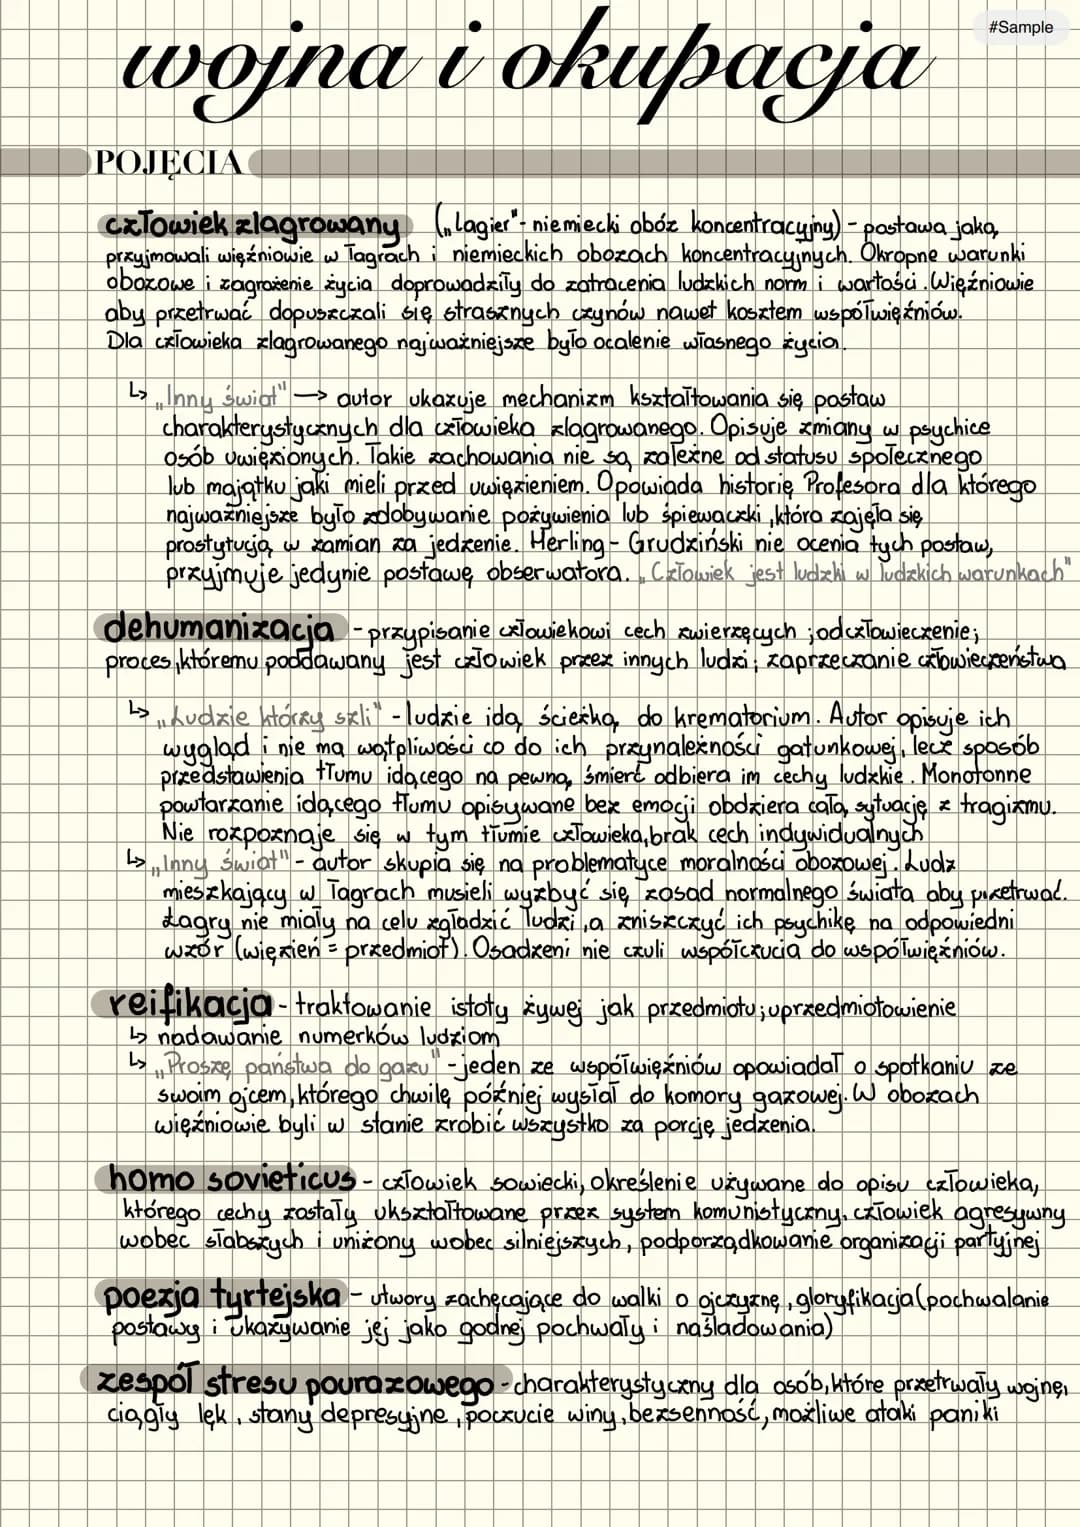 #Sample
wojna i okupacja
POJĘCIA
człowiek zlagrowany („Lagier"- niemiecki obóz koncentracyjny) - postawa jaką
przyjmowali więźniowie w łagrach i niemieckich obozach koncentracyjnych. Okropne warunki
obozowe i zagrożenie życia doprowadziły do zatracenia ludzkich norm i wartości. Więźniowie
aby przetrwać dopuszczali się strasznych czynów nawet kosztem współwięźniów.
Dla człowieka zlagrowanego najważniejsze było ocalenie własnego życia.
↳ „Inny świat" → autor ukazuje mechanizm kształtowania się postaw
charakterystycznych dla człowieka zlagrowanego. Opisuje zmiany w psychice
osób uwięzionych. Takie zachowania nie są zależne od statusu społecznego
lub majątku jaki mieli przed uwięzieniem. Opowiada historię Profesora dla którego
najważniejsze było zdobywanie pożywienia lub śpiewaczki, która zajęła się
prostytucją w zamian za jedzenie. Herling - Grudziński nie ocenia tych postaw,
przyjmuje jedynie postawę obserwatora. „Człowiek jest ludzki w ludzkich warunkach"
dehumanizacja - przypisanie człowiekowi cech zwierzęcych ; odczłowieczenie;
proces, któremu poddawany jest człowiek przez innych ludzi; zaprzeczanie człowieczeństwa
↳ „Ludzie którzy szli" - ludzie idą ścieżką do krematorium. Autor opisuje ich
wygląd i nie ma wątpliwości co do ich przynależności gatunkowej, lecz sposób
przedstawienia tłumu idącego na pewną śmierć odbiera im cechy ludzkie. Monotonne
powtarzanie idącego tłumu opisywane bez emocji obdziera całą sytuację z tragizmu.
Nie rozpoznaje się w tym tłumie człowieka, brak cech indywidualnych
↳ „Inny świat" - autor skupia się na problematyce moralności obozowej. Ludz
mieszkający w łagrach musieli wyzbyć się zasad normalnego świata aby przetrwać.
Łagry nie miały na celu zgładzić ludzi, a zniszczyć ich psychikę na odpowiedni
wzór (więzień = przedmiot). Osadzeni nie czuli współczucia do współwięźniów.
reifikacja - traktowanie istoty żywej jak przedmiotu; uprzedmiotowienie
↳ nadawanie numerków ludziom
↳ „Proszę państwa do gazu" - jeden ze współwięźniów opowiadał o spotkaniu ze
swoim ojcem, którego chwilę później wysłał do komory gazowej. W obozach
więźniowie byli w stanie zrobić wszystko za porcję jedzenia.
homo sovieticus - człowiek sowiecki, określenie używane do opisu człowieka,
którego cechy zostały ukształtowane przez system komunistyczny. człowiek agresywny
wobec słabszych i uniżony wobec silniejszych, podporządkowanie organizacji partyjnej
poezja tyrtejska - utwory zachęcające do walki o ojczyznę, gloryfikacja (pochwalanie
postawy i ukazywanie jej jako godnej pochwały i naśladowania)
zespół stresu pourazowego - charakterystyczny dla osób, które przetrwały wojnę,
ciągły lęk, stany depresyjne, poczucie winy, bezsenność, możliwe ataki paniki